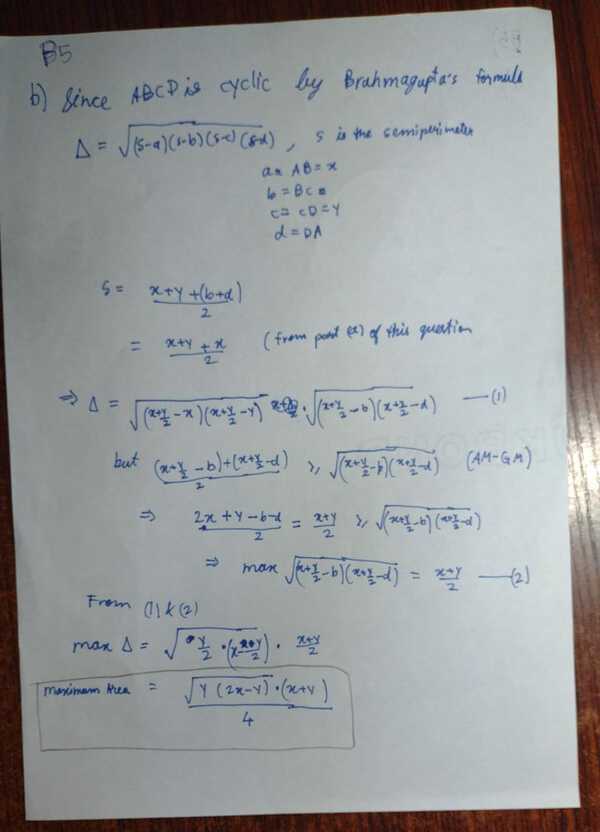 B5
b) Since ABCD is cyclic by Brahmagupta's formula
Δ = √(s-a)(s-b)(s-c)(s-d) , s is the semiperimeter
a = AB = x
b = BC =
c = CD = Y
d = DA
S = x+Y+(b+d)/2
= x+Y+x/2 (from part (a) of this question
⇒ Δ = √(x+Y/2 - x)(x+Y/2 - Y) · √(x+Y/2 - b)(x+Y/2 - d) —(1)
but (x+Y/2 - b)+(x+Y/2 - d)/2 ⩾ √(x+Y/2 - b)(x+Y/2 - d) (AM-GM)
⇒ 2x+Y-b-d/2 = x+Y/2 ⩾ √(x+Y/2 - b)(x+Y/2 - d)
⇒ max √(x+Y/2 - b)(x+Y/2 - d) = x+Y/2 —(2)
From (1) & (2)
max Δ = √Y/2 · (x - Y/2) · x+Y/2
Maximum Area = √Y(2x-Y) · (x+Y)/4